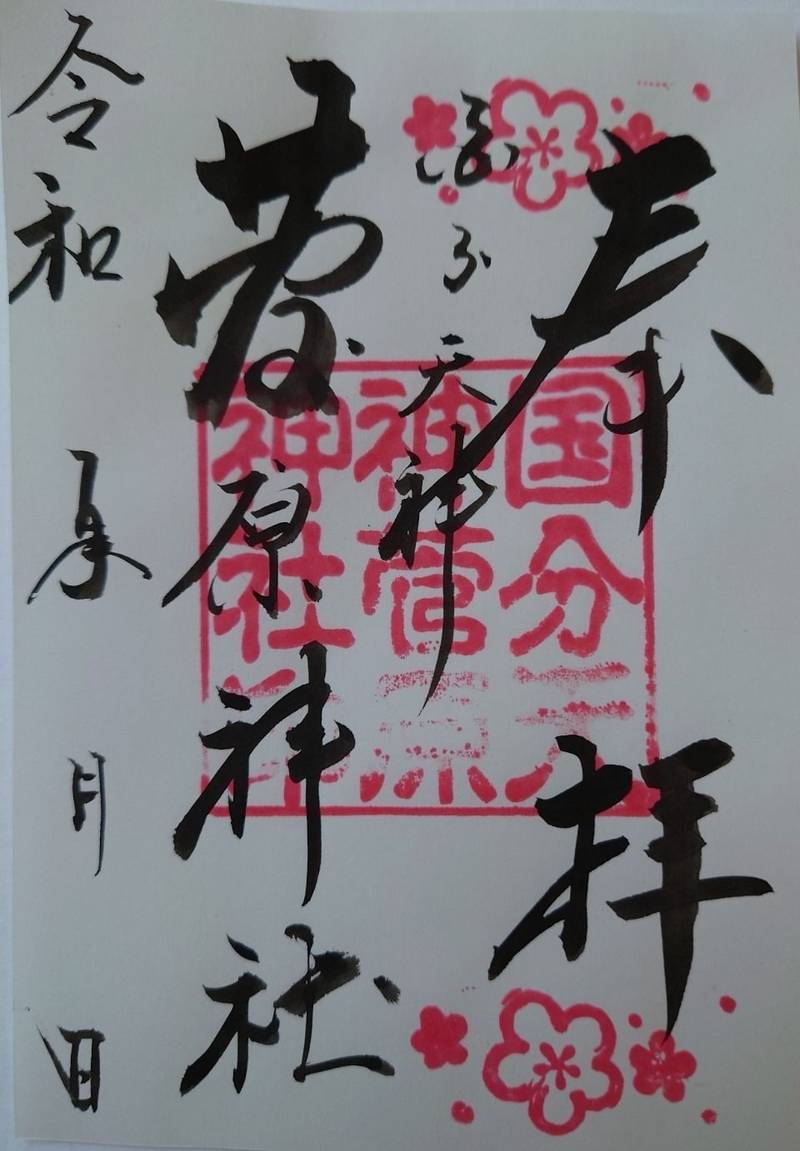 奉拝
国分天神
菅原神社
令和 年 月 日
国分天
神菅原
神社